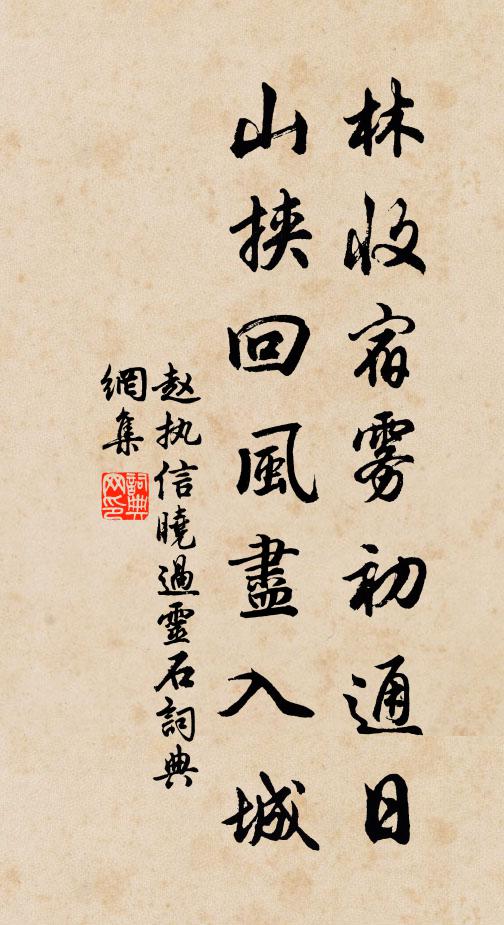 林收宿雾初通日
山挾回風盡入城
赵执信曉過靈石詞典
網集
詞典
网印